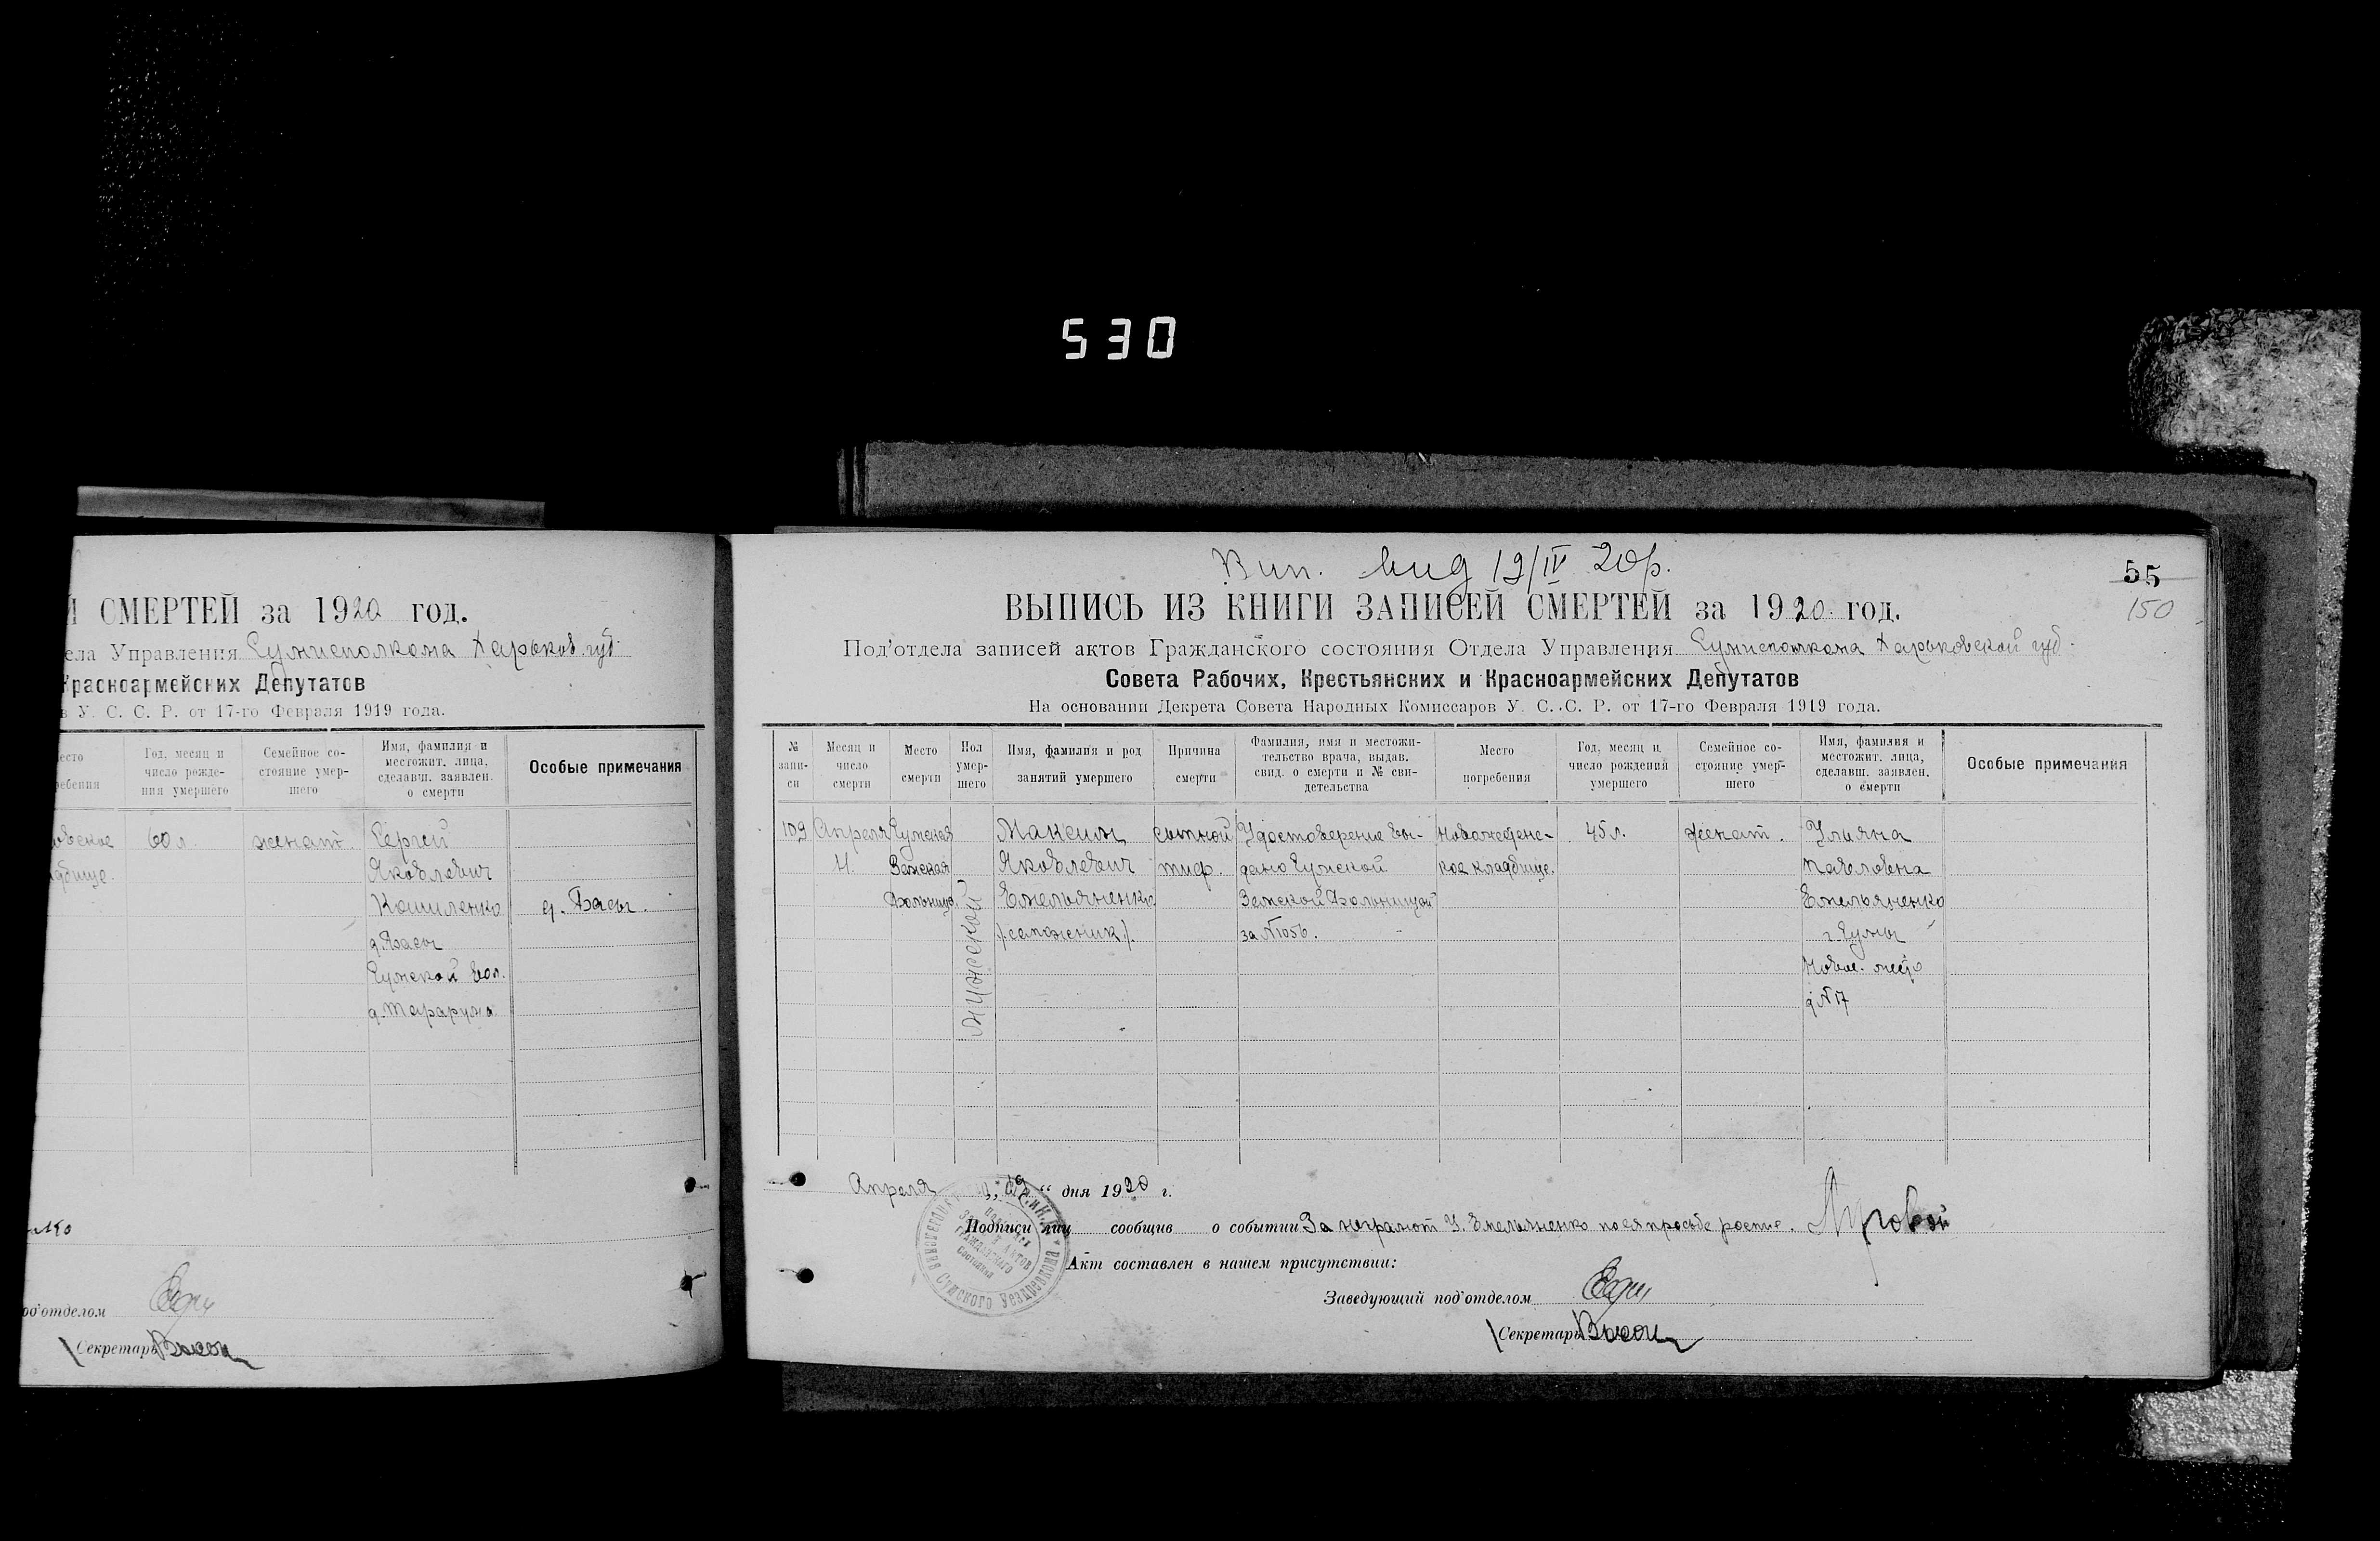 530
И СМЕРТЕЙ за 1920 год.
ела Управления Сумисполкома Харьков. губ.
Красноармейских Депутатов
в У. С. С. Р. от 17-го Февраля 1919 года.
есто
ребения
Год, месяц и
число рожде-
ния умершего
Семейное со-
стояние умер-
шего
Имя, фамилия и
местожит. лица,
сделавш. заявлен.
о смерти
Особые примечания
60 л.
женат.
Сергей
Яковлевич
Кошиленко
д. Басы
Сумской вол.
д. Басы.
од'отделом
Секретарь
Вип. вид 19/IV 20р.
55
150
ВЫПИСЬ ИЗ КНИГИ ЗАПИСЕЙ СМЕРТЕЙ за 1920 год.
Под'отдела записей актов Гражданского состояния Отдела Управления Сумисполкома Харьковской губ.
Совета Рабочих, Крестьянских и Красноармейских Депутатов
На основании Декрета Совета Народных Комиссаров У. С. С. Р. от 17-го Февраля 1919 года.
№
запи-
си
Месяц и
число
смерти
Место
смерти
Пол
умер-
шего
Имя, фамилия и род
занятий умершего
Причина
смерти
Фамилия, имя и местожи-
тельство врача, выдав.
свид. о смерти и № сви-
детельства
Место
погребения
Год, месяц и
число рождения
умершего
Семейное со-
стояние умер-
шего
Имя, фамилия и
местожит. лица,
сделавш. заявлен.
о смерти
Особые примечания
109
Апреля
Сумская
Земская
Больница
мужской
Максим
Яковлевич
Емельяненко
/сапожник/.
сыпной
тиф.
Удостоверение вы-
дано Сумской
Земской Больницой
за №1056.
кое кладбище.
45 л.
женат.
Ульяна
Павловна
Емельяненко
г. Сумы
д №17
Апреля „19“ дня 1920 г.
Подписи лиц сообщив о событии За неграмот У. Емельяненко по ея просьбе
Акт составлен в нашем присутствии:
Заведующий под'отделом
Секретарь